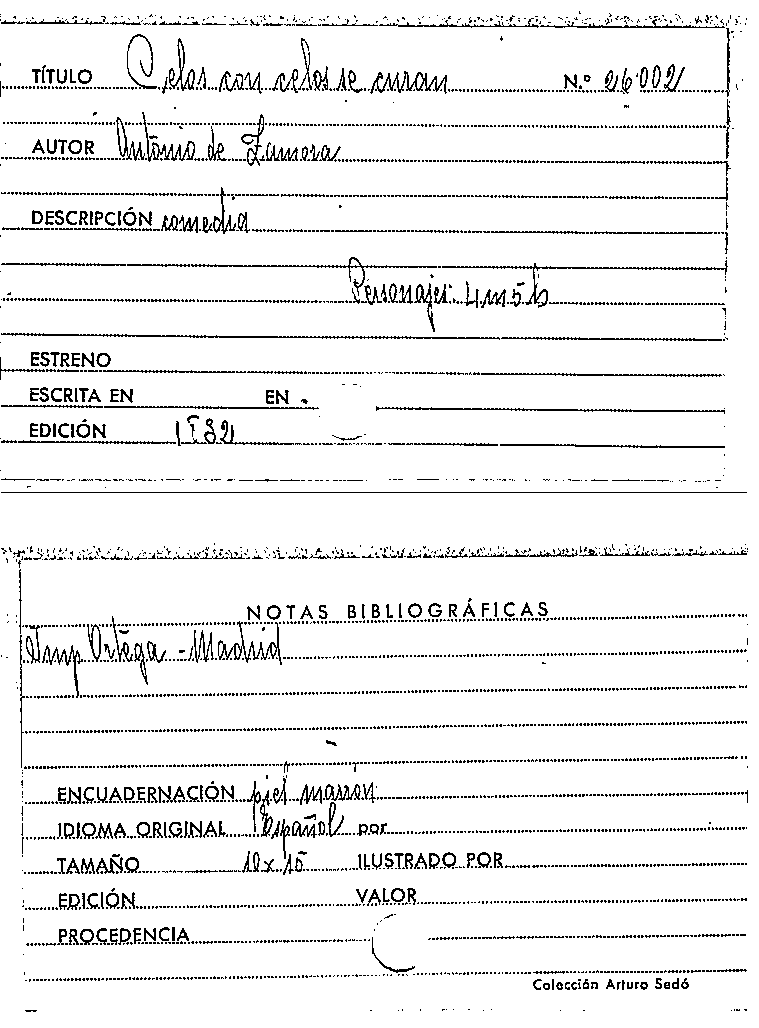 TÍTULO Celos con celos se curan N.º 26002
AUTOR Antonio de Zamora
DESCRIPCIÓN comedia
Personajes: 4m 5h
ESTRENO
ESCRITA EN EN
EDICIÓN 1832
NOTAS BIBLIOGRÁFICAS
Imp Ortega - Madrid
ENCUADERNACIÓN piel marrón
IDIOMA ORIGINAL Español por
TAMAÑO 10 x 15 ILUSTRADO POR
EDICIÓN VALOR
PROCEDENCIA
Colección Arturo Sedó